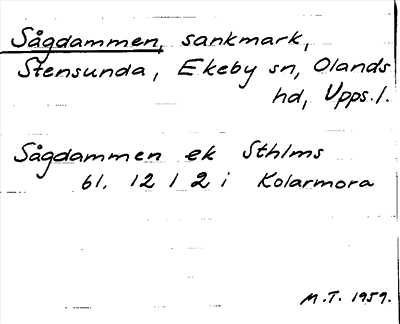 Sågdammen, sankmark,
Stensunda, Ekeby sn, Olands
hd, Upps.l.
Sågdammen ek Sthlms
bl. 12 1 2 i Kolarmora
M.T. 1959.